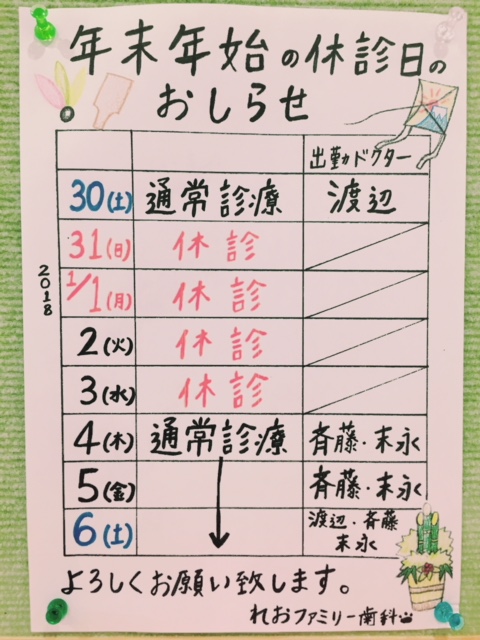 年末年始の休診日の
おしらせ
出勤ドクター
30(土) 通常診療 渡辺
31(日) 休診
2018
1/1(月) 休診
2(火) 休診
3(水) 休診
4(木) 通常診療 斉藤・末永
5(金) 斉藤・末永
6(土) 渡辺・斉藤
末永
よろしくお願い致します。
れおファミリー歯科